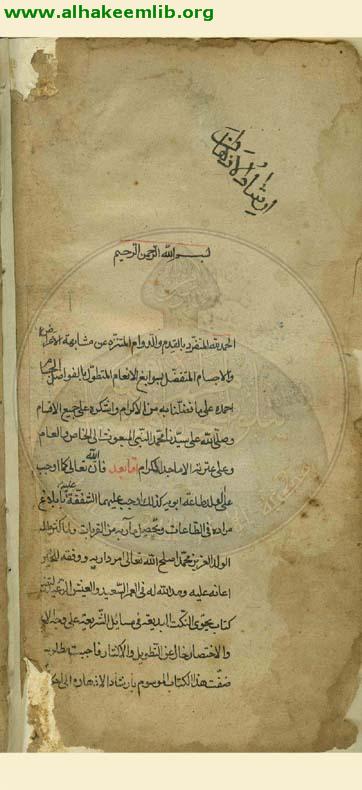 www.alhakeemlib.org
ارشاد الاذهان
بسم الله الرحمن الرحيم
الحمد لله المتفرد بالقدم والدوام المتنزه عن مشابهة الاعراض
والاجسام المتفضل بسوابغ الانعام المتطول بالفواضل الجسام
احمده على ما فضلنا به من الاكرام واشكره على جميع الاقسام
وصلى الله على سيدنا محمد النبي المبعوث الى الخاص والعام
وعلى عترته الاماجد الكرام اما بعد فان الله تعالى كما اوجب
على الولد طاعة ابويه كذلك اوجب عليهما الشفقة عليه بابلاغ
مراده في الطاعات وتحصيل مآربه من القربات ولما كثر
الولد العزيز محمد اصلح الله تعالى امر داريه ووفقه للخير
اعانه عليه ومد الله له في العمر السعيد والعيش الرغيد
كتاب يحوى النكت البديعة في مسائل الشريعة على وجه
والاختصار خال عن التطويل والاكثار فاجبت مطلوبه
صنفت هذا الكتاب الموسوم بارشاد الاذهان الى